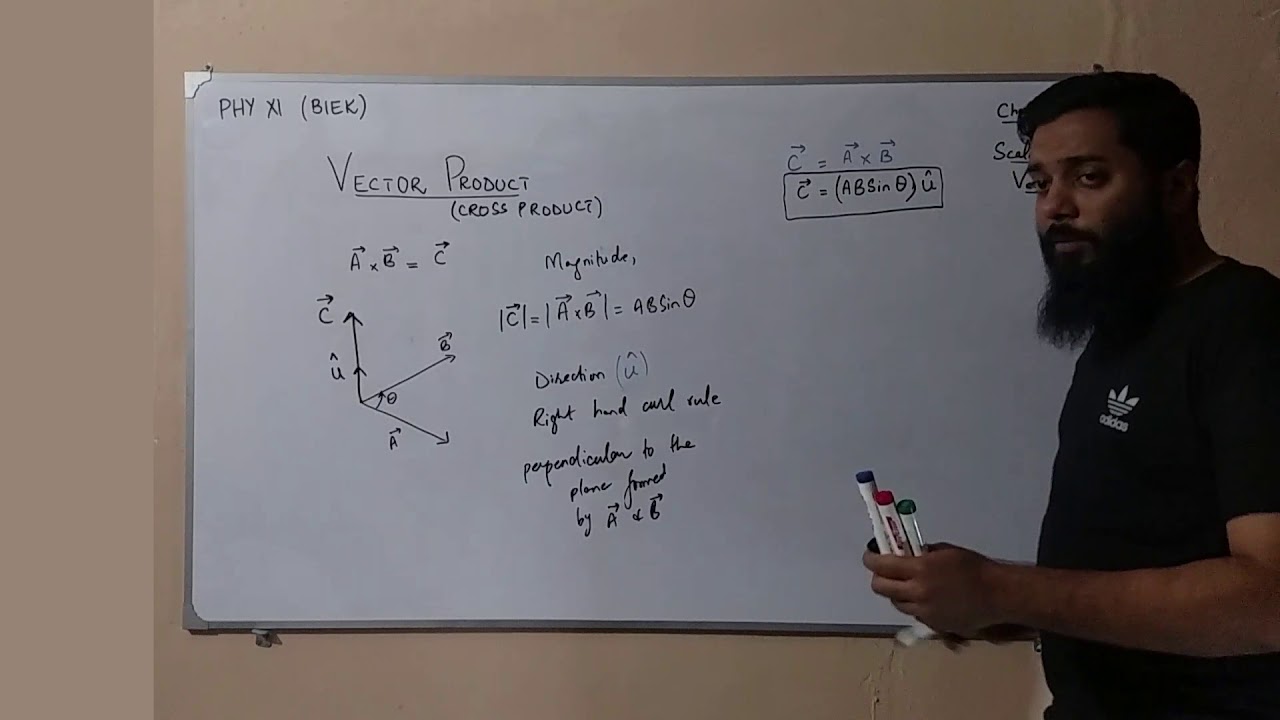 PHY XI (BIEK)
VECTOR PRODUCT
(CROSS PRODUCT)
A⃗ × B⃗ = C⃗
C⃗
û
B⃗
θ
A⃗
Magnitude,
|C⃗| = |A⃗ × B⃗| = AB Sin θ
Direction (û)
Right hand curl rule
perpendicular to the
plane formed
by A⃗ & B⃗
C⃗ = A⃗ × B⃗
C⃗ = (AB Sin θ) û
adidas